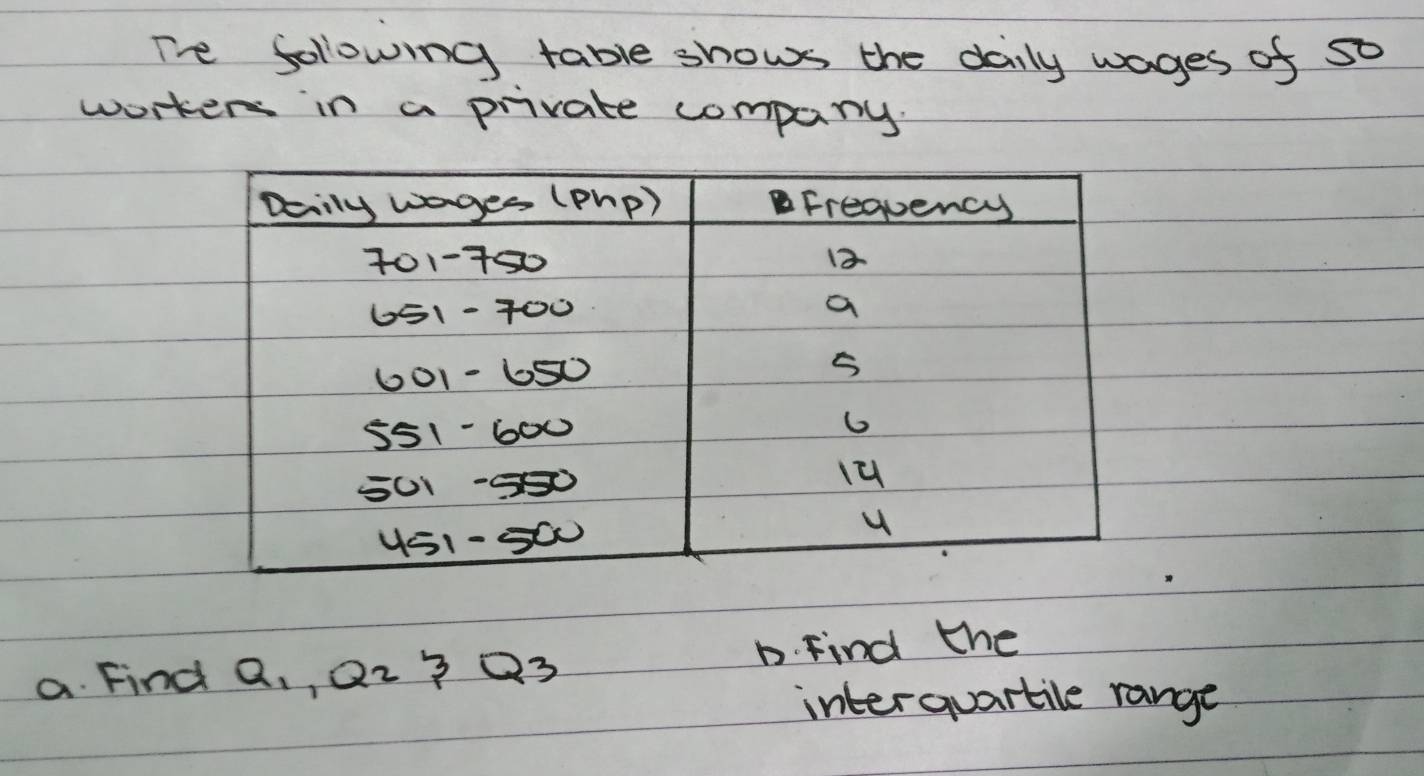 The following table shows the daily wages of 50
workers in a private company.
Daily wages (Php) Frequency
701-750 12
651-700 9
601-650 5
551-600 6
501-550 14
451-500 4
a. Find Q1, Q2 & Q3
b. Find the
interquartile range